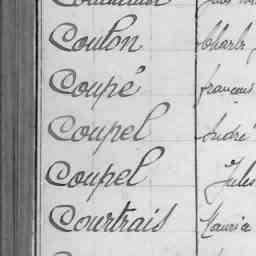 Coulon Charles
Coupé François
Coupel André
Coupel Jules
Courtrais Maurice